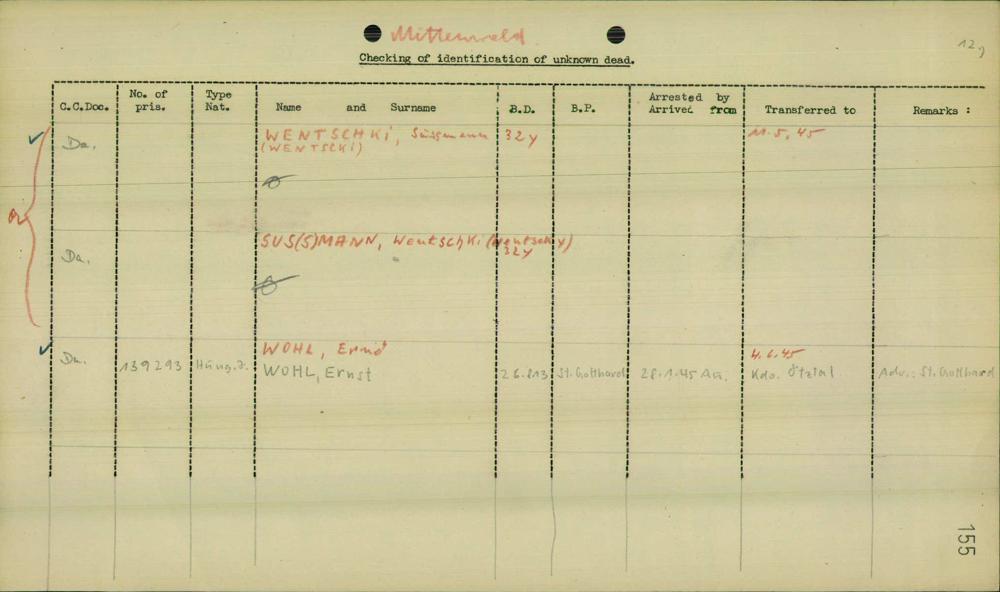 Mittenwald
12.)
Checking of identification of unknown dead.
C.C.Doc. No. of pris. Type Nat. Name and Surname B.D. B.P. Arrested by Arrived from Transferred to Remarks :
Da. WENTSCHKI, Süssmann 32y 11.5.45
(WENTSCKI)
Da. SUS(S)MANN, Wentschki (Wentschky)
32y
Da. WOHL, Ernö 4.6.45
139293 Hung.J. WOHL, Ernst St. Gotthard 28.1.45 Au. Kdo. Ötztal Adr.: St. Gotthard
155